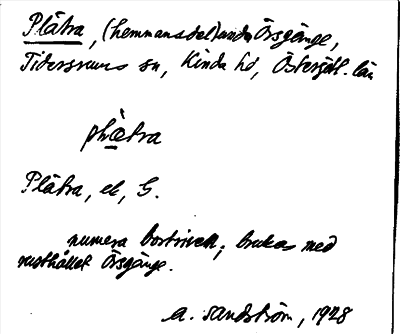 Plåtra, (hemmansdel) under Örsgånge,
Tidersrums sn, Kinda hd, Östergötl. län
plɷtra
Plåtra, et, G.
numera bortriven, brukas med
rusthållet Örsgånge.
A. Sandström, 1928